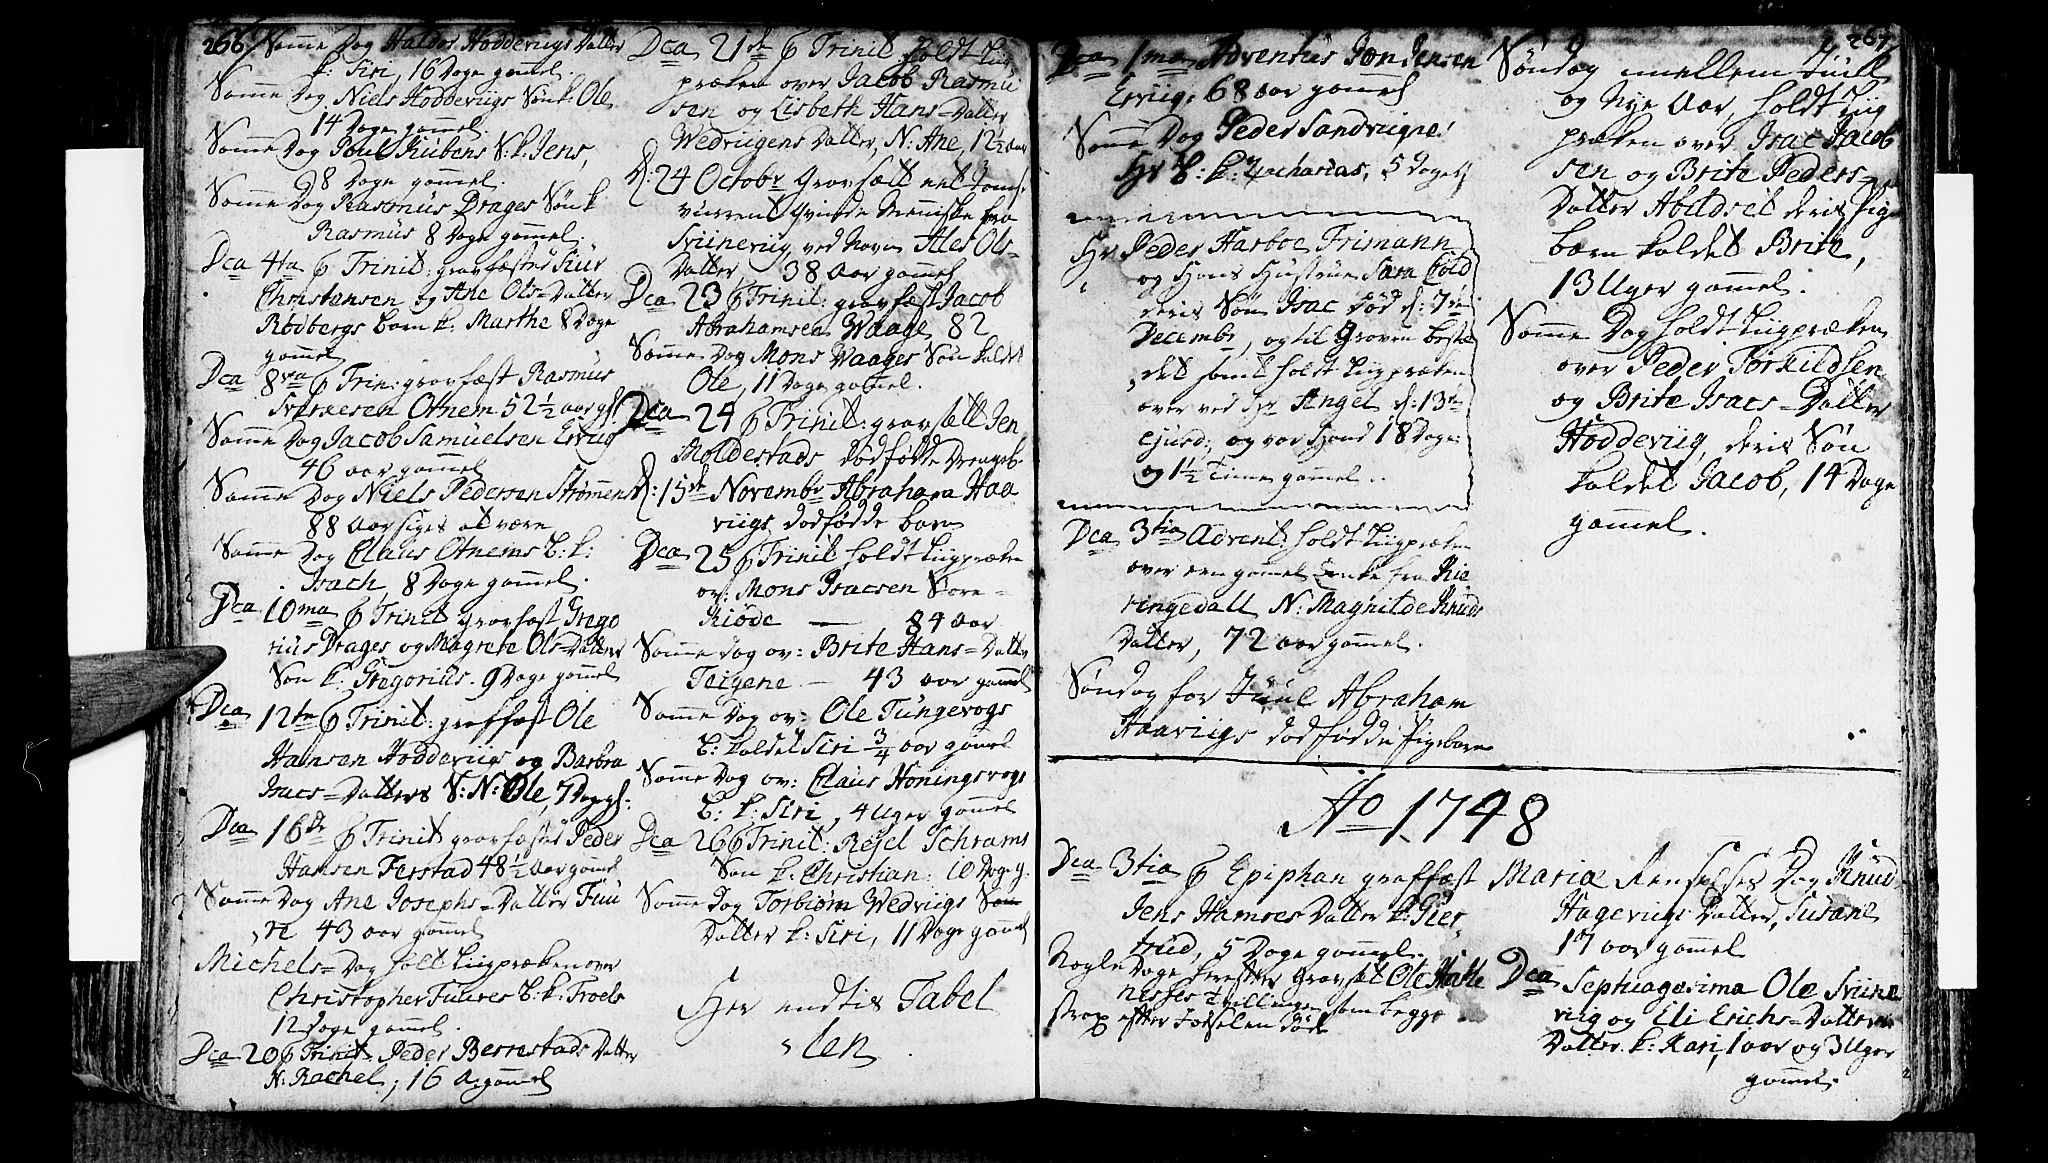 266/ Samme Dag Haldor Hodderiigs Datter
k: Siri, 16 Dage gammel.
Samme Dag Niels Hodderiigs Søn k. Ole
14 Dage gammel.
Samme Dag Poul Rübens S. k. Jens,
8 Dage gammel.
Samme Dag Rasmus Drages Søn k
Rasmus 8 Dage gammel.
Dca 4ta p Trinit: gravfæsted Siur
Christensen og Ane Ols=Datter
Rødbergs barn k: Marthe 8 Dage
gammel
Dca 8va p Trin: gravfæst Rasmus
Sverkesen Otnem 52 1/2 aar gl.
Samme Dag Jacob Samuelsen Ervig
46 aar gammel
Samme Dag Niels Pedersen Strømens
88 Aar siges at være
Samme Dag Claus Otnems B: k:
Isach, 8 Dage gammel.
Dca 10ma p Trinit gravfæst Grego
rius Drages og Magrete Ols=Datter
Søn k: Gregorius 9 Dage gammel
Dca 12te p Trinit: graffæst Ole
Hansen Hodderiigs og Barbra
Isacs=Datters S: N: Ole, 7 Dage gl:
Dca 16de p Trinit gravfæsted Peder
Hansen Ferstad 48 1/2 Aar gamel
Samme Dag Ane Josephs=Datter Fuu
re 43 aar gammel
Michels=Dag holt Liigpræken over
Christopher Fuures B: k: Troels
12 Dage gammel.
Dca 20 p Trinit. Peder Berrestads Datter
N: Rachel, 16 A gammel
Dca 21de p Trinit holdt Liig
præken over Jacob Rasmu
sen og Lisbeth Hans=Datter
Wedviigens Datter, N: Ane, 12 1/2 aar
d: 24 Octobr Gravfæst et Jom
vurrent Qvinde Menniske fra
Sviineviig ved Navn Ales Ols=
Datter 38 Aar gammel
Dca 23 p Trinit: gravfæst Jacob
Abrahamsen Waage, 82
Samme Dag Mons Waages Søn kaldet
Ole, 11 Dage gammel.
Dca 24 p Trinit: gravfæstt Jen
Moldestads dødfødde Drengeb.
d: 15de Novembr Abraham Haa
rviigs dødfødde barn
Dca 25 p Trinit holdt Liigpræken
ov: Mons Isacsen Store=
Riøde — 84 aar
Samme dag ov: Brite Hans=Datter
Teigene — 43 aar gammel
Samme Dag ov: Ole Tungevogs
B: kaldet Siri 3/4 aar gammel
Samme Dag ov: Claus Honingsvogs
B: k: Siri, 4 Uger gammel
Dca 26 p Trinit: Resel Schrams
Søn k. Christian: 10 Dage g.
Samme Dag Torbiørn Wedviigs Søn
Datter k: Siri, 11 Dage gammel
Her endtis Tabel
len
267
Dca 1ma Adventus Jon Jensen
Erviig, 68 aar gammel
Samme Dag Peder Sandviigne
Hr B: k: Zacharias, 5 Dage gl
Hr Peder Harboe Frimann
og Hans Hustrue Sara Cold
deris Søn Isac død d: 7de
Decembr, og til Graven beste
det samt holdt Liigpræken
over ved Hr Angel d: 13de
ejusd: og var Hand 18 Dage
og 1 1/2 Time gammel.
Dca 3tia Advent: holdt Liigpræken
over een gamel Enke fra Rie
ringedall N: Magnilde Knuds
Datter, 72 aar gammel.
Søndag for Juul Abraham
Haaviigs dødfødde Pigebarn
Søndag mellem Juul
og Nye Aar, holdt Liig
præken over Isac Jacob
sen og Brite Peders=
Datter Abildset deris Pige
barn kaldet Brite,
13 Uger gammel.
Samme Dag holdt Liigpræken
over Peder Torkildsen
og Brite Isacs=Datter
Hodderiig, deris Søn
kaldet Jacob, 14 Dage
gammel.
Ao 1748
Dca 3tia p Epiphan graffæst
Jens Hamres Datter k: Gier
trud, 5 Dage gammel.
Nogle Dage herefter Gravfæst Ole Hatle
nesses Tvillinger som begge
strax efter Fødselen døde
Mariæ Renselses Dag Knud
Hageviigs Datter, Susane
17 aar gammel
Dca Septuagesima Ole Sviine
viig og Eli Erichs=Datter
Datter k: Kari, 1 aar og 3 Uger
gammel.